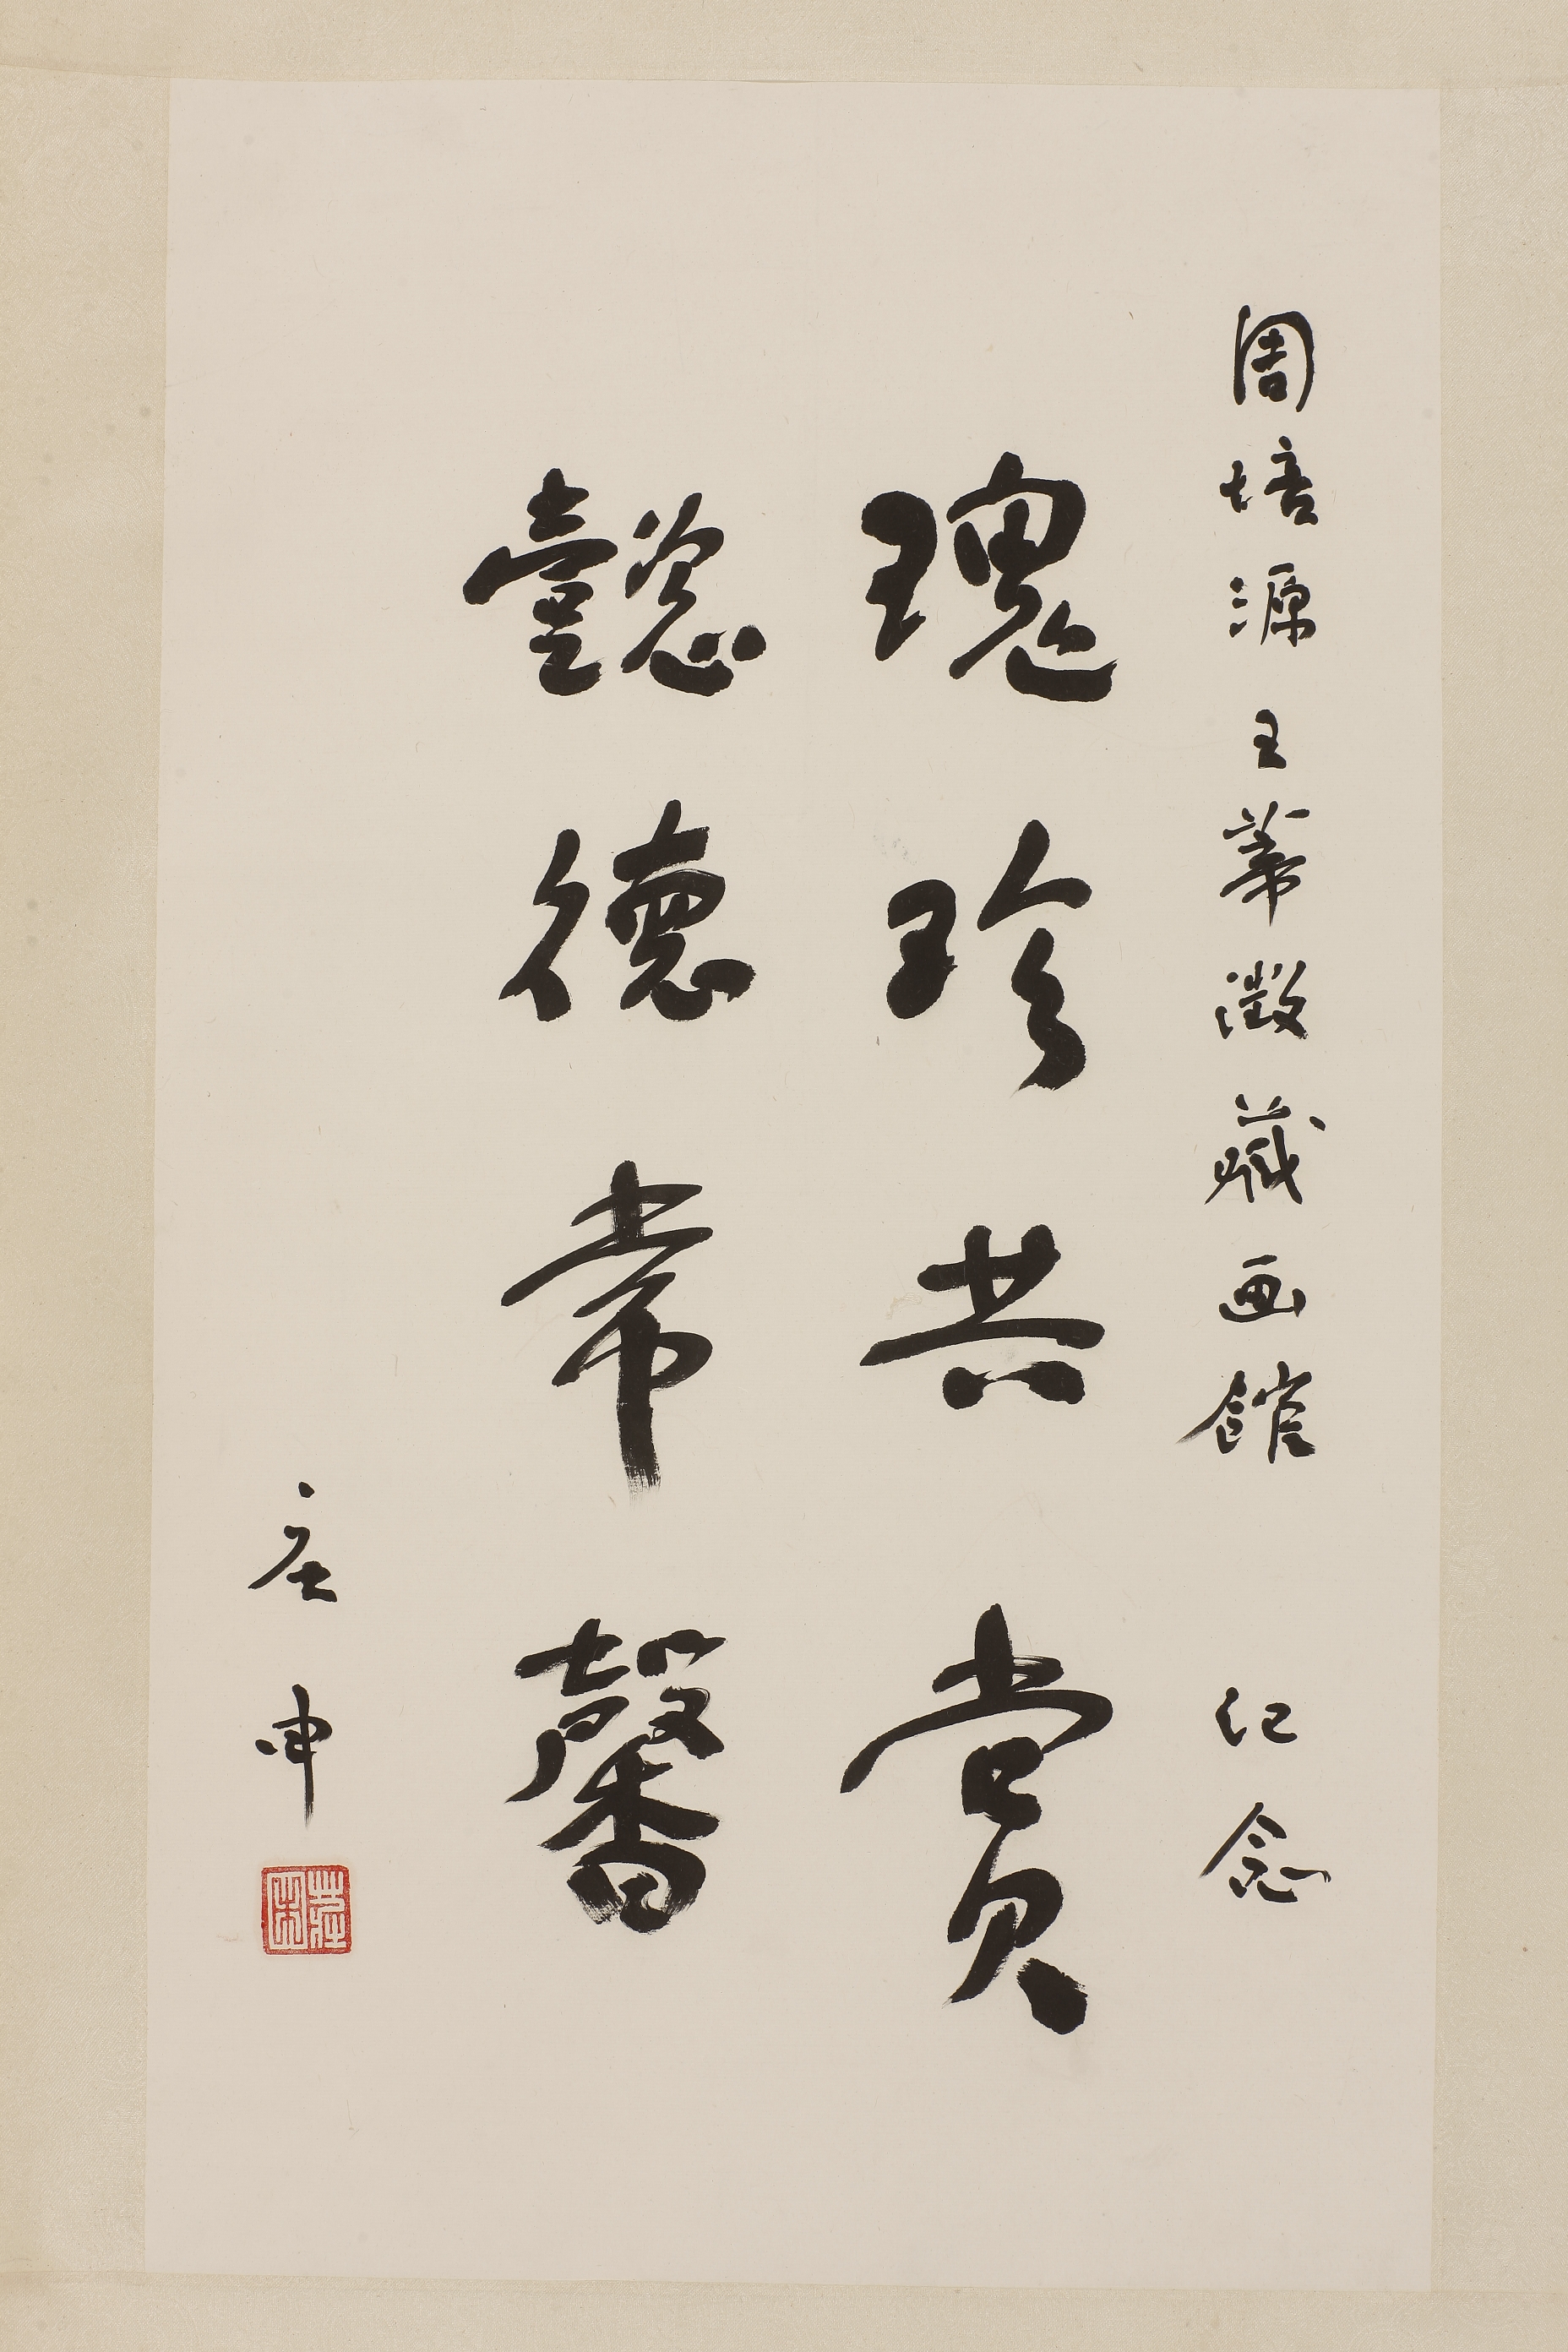 周培源王蒂澂藏画馆 纪念
瑰珍共赏
懿德常馨
庄申